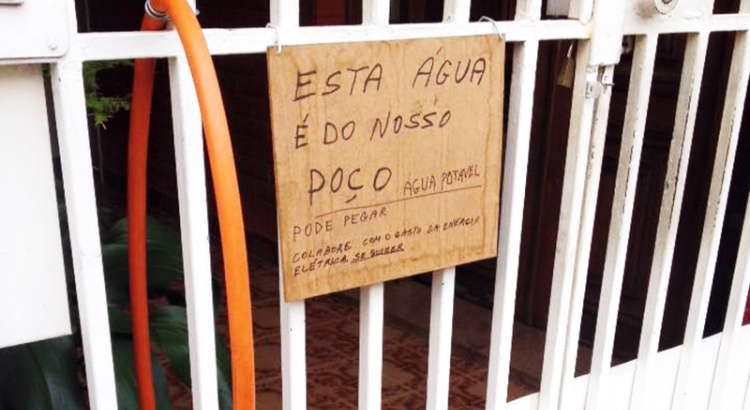 ESTA ÁGUA
É DO NOSSO
POÇO ÁGUA POTÁVEL
PODE PEGAR
COLABORE COM O GASTO DA ENERGIA
ELÉTRICA, SE QUISER